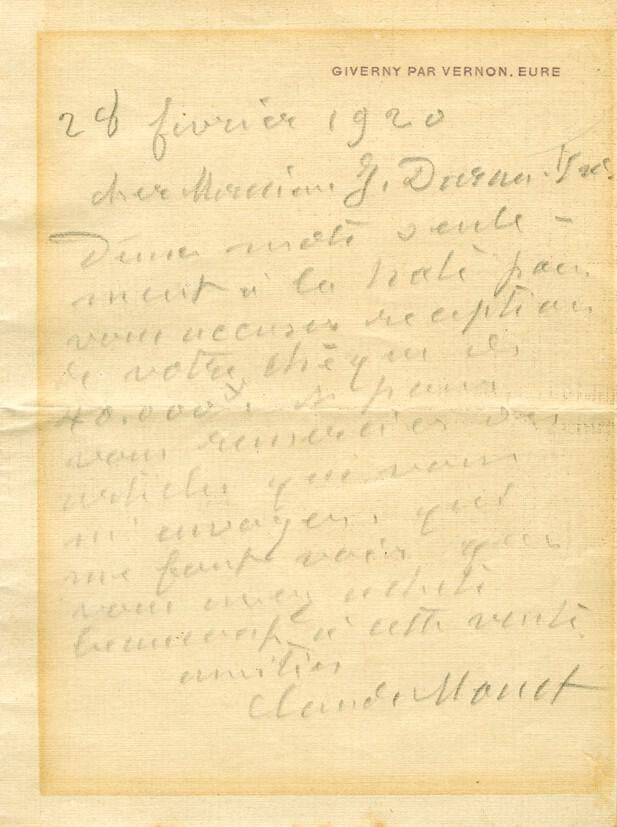 GIVERNY PAR VERNON. EURE
28 février 1920
cher Monsieur G. Duran-
Deux mots seule-
ment à la hate pour
vous accuser reception
de votre chèque de
40.000 f. et pour
vous remercier des
articles que vous
m'envoyez, qui
me font voir que
vous avez acheté
beaucoup à cette vente.
amitiés
Claude Monet